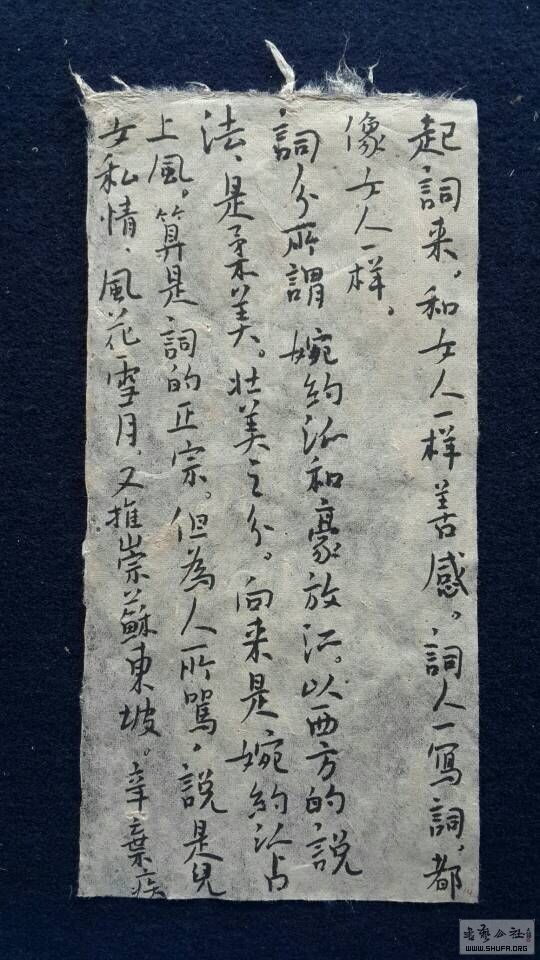 起詞来，和女人一样善感。詞人一寫詞，都
像女人一样。
詞分所謂婉約派和豪放派。以西方的說
法、是柔美。壮美之分。向来是婉約派占
上風。算是詞的正宗。但為人所罵，說是兒
女私情、風花雪月，又推崇蘇東坡。辛棄疾
书艺公社
WWW.SHUFA.ORG